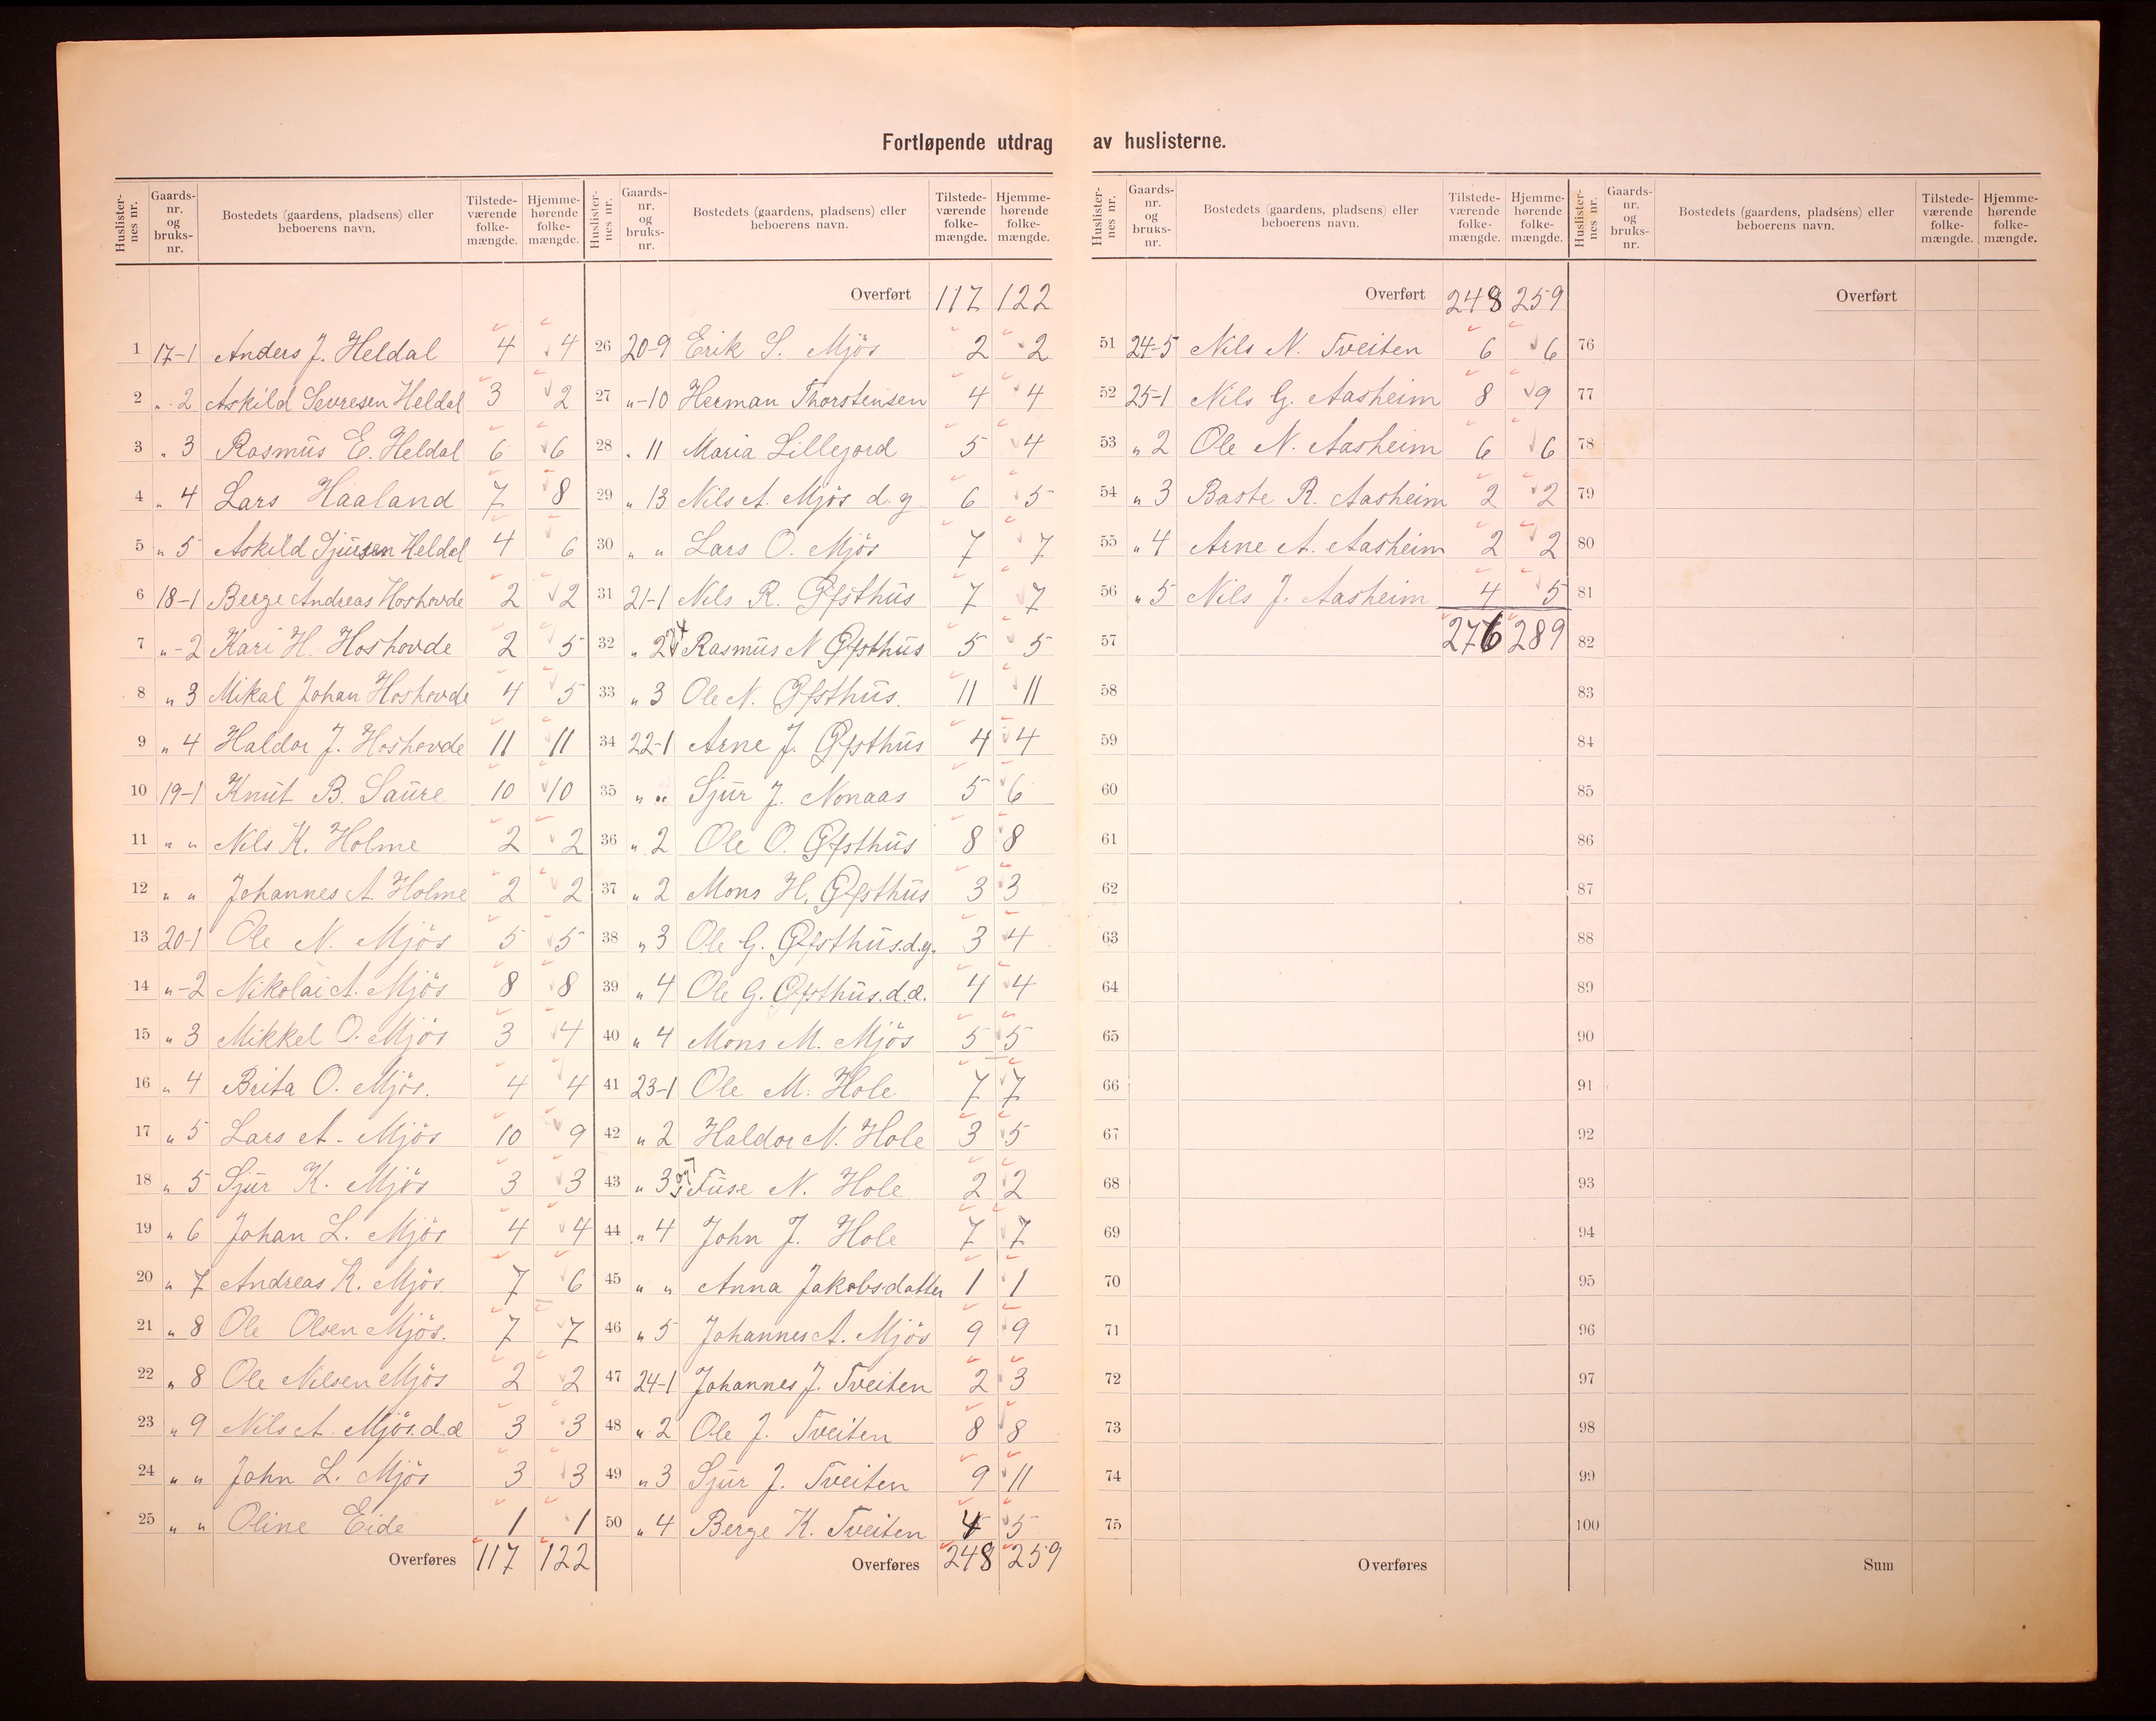 Fortløpende utdrag av huslisterne.
Huslister-nes nr. | Gaards-nr. og bruks-nr. | Bostedets (gaardens, pladsens) eller beboerens navn. | Tilstede-værende folke-mængde. | Hjemme-hørende folke-mængde.
1 17-1 Anders J. Heldal 4 4
2 „ 2 Askild Sevresen Heldal 3 2
3 „ 3 Rasmus E. Heldal 6 6
4 „ 4 Lars Haaland 7 8
5 „ 5 Askild Sjursen Heldal 4 6
6 18-1 Berge Andreas Hoshovde 2 2
7 „-2 Kari H. Hoshovde 2 5
8 „ 3 Mikal Johan Hoshovde 4 5
9 „ 4 Haldor J. Hoshovde 11 11
10 19-1 Knut B. Saure 10 10
11 „ „ Nils K. Holme 2 2
12 „ „ Johannes A. Holme 2 2
13 20-1 Ole N. Mjös 5 5
14 „-2 Nikolai A. Mjös 8 8
15 „ 3 Mikkel O. Mjös 3 4
16 „ 4 Brita O. Mjös. 4 4
17 „ 5 Lars A. Mjös 10 9
18 „ 5 Sjur K. Mjös 3 3
19 „ 6 Johan L. Mjös 4 4
20 „ 7 Andreas K. Mjös. 7 6
21 „ 8 Ole Olsen Mjös. 7 7
22 „ 8 Ole Nilsen Mjös 2 2
23 „ 9 Nils A. Mjös. d.æ 3 3
24 „ „ John L. Mjös 3 3
25 „ „ Oline Eide 1 1
Overføres 117 122
Huslister-nes nr. | Gaards-nr. og bruks-nr. | Bostedets (gaardens, pladsens) eller beboerens navn. | Tilstede-værende folke-mængde. | Hjemme-hørende folke-mængde.
Overført 117 122
26 20-9 Erik S. Mjös 2 2
27 „-10 Herman Thorstensen 4 4
28 „ 11 Maria Lillejord 5 4
29 „ 13 Nils A. Mjös d.y 6 5
30 „ „ Lars O. Mjös 7 7
31 21-1 Nils R. Øfsthus 7 7
32 „ 2 4 Rasmus N Øfsthus 5 5
33 „ 3 Ole N. Øfsthus. 11 11
34 22-1 Arne J. Øfsthus 4 4
35 „ „ Sjur J. Nonaas 5 6
36 „ 2 Ole O. Øfsthus 8 8
37 „ 2 Mons H. Øfsthus 3 3
38 „ 3 Ole G. Øfsthus. d.y. 3 4
39 „ 4 Ole G. Øfsthus. d.æ. 4 4
40 „ 4 Mons M. Mjös 5 5
41 23-1 Ole M. Hole 7 7
42 „ 2 Haldor N. Hole 3 5
43 „ 3 Fuse N. Hole 2 2
44 „ 4 John J. Hole 7 7
45 „ „ Anna Jakobsdatter 1 1
46 „ 5 Johannes A. Mjös 9 9
47 24-1 Johannes J. Tveiten 2 3
48 „ 2 Ole J. Tveiten 8 8
49 „ 3 Sjur J. Tveiten 9 11
50 „ 4 Berge K. Tveiten 4 5
Overføres 248 259
Huslister-nes nr. | Gaards-nr. og bruks-nr. | Bostedets (gaardens, pladsens) eller beboerens navn. | Tilstede-værende folke-mængde. | Hjemme-hørende folke-mængde.
Overført 248 259
51 24-5 Nils N. Tveiten 6 6
52 25-1 Nils G. Aasheim 8 9
53 „ 2 Ole N. Aasheim 6 6
54 „ 3 Baste R. Aasheim 2 2
55 „ 4 Arne A. Aasheim 2 2
56 „ 5 Nils J. Aasheim 4 5
57 276 289
58
59
60
61
62
63
64
65
66
67
68
69
70
71
72
73
74
75
Overføres
Huslister-nes nr. | Gaards-nr. og bruks-nr. | Bostedets (gaardens, pladsens) eller beboerens navn. | Tilstede-værende folke-mængde. | Hjemme-hørende folke-mængde.
Overført
76
77
78
79
80
81
82
83
84
85
86
87
88
89
90
91
92
93
94
95
96
97
98
99
100
Sum